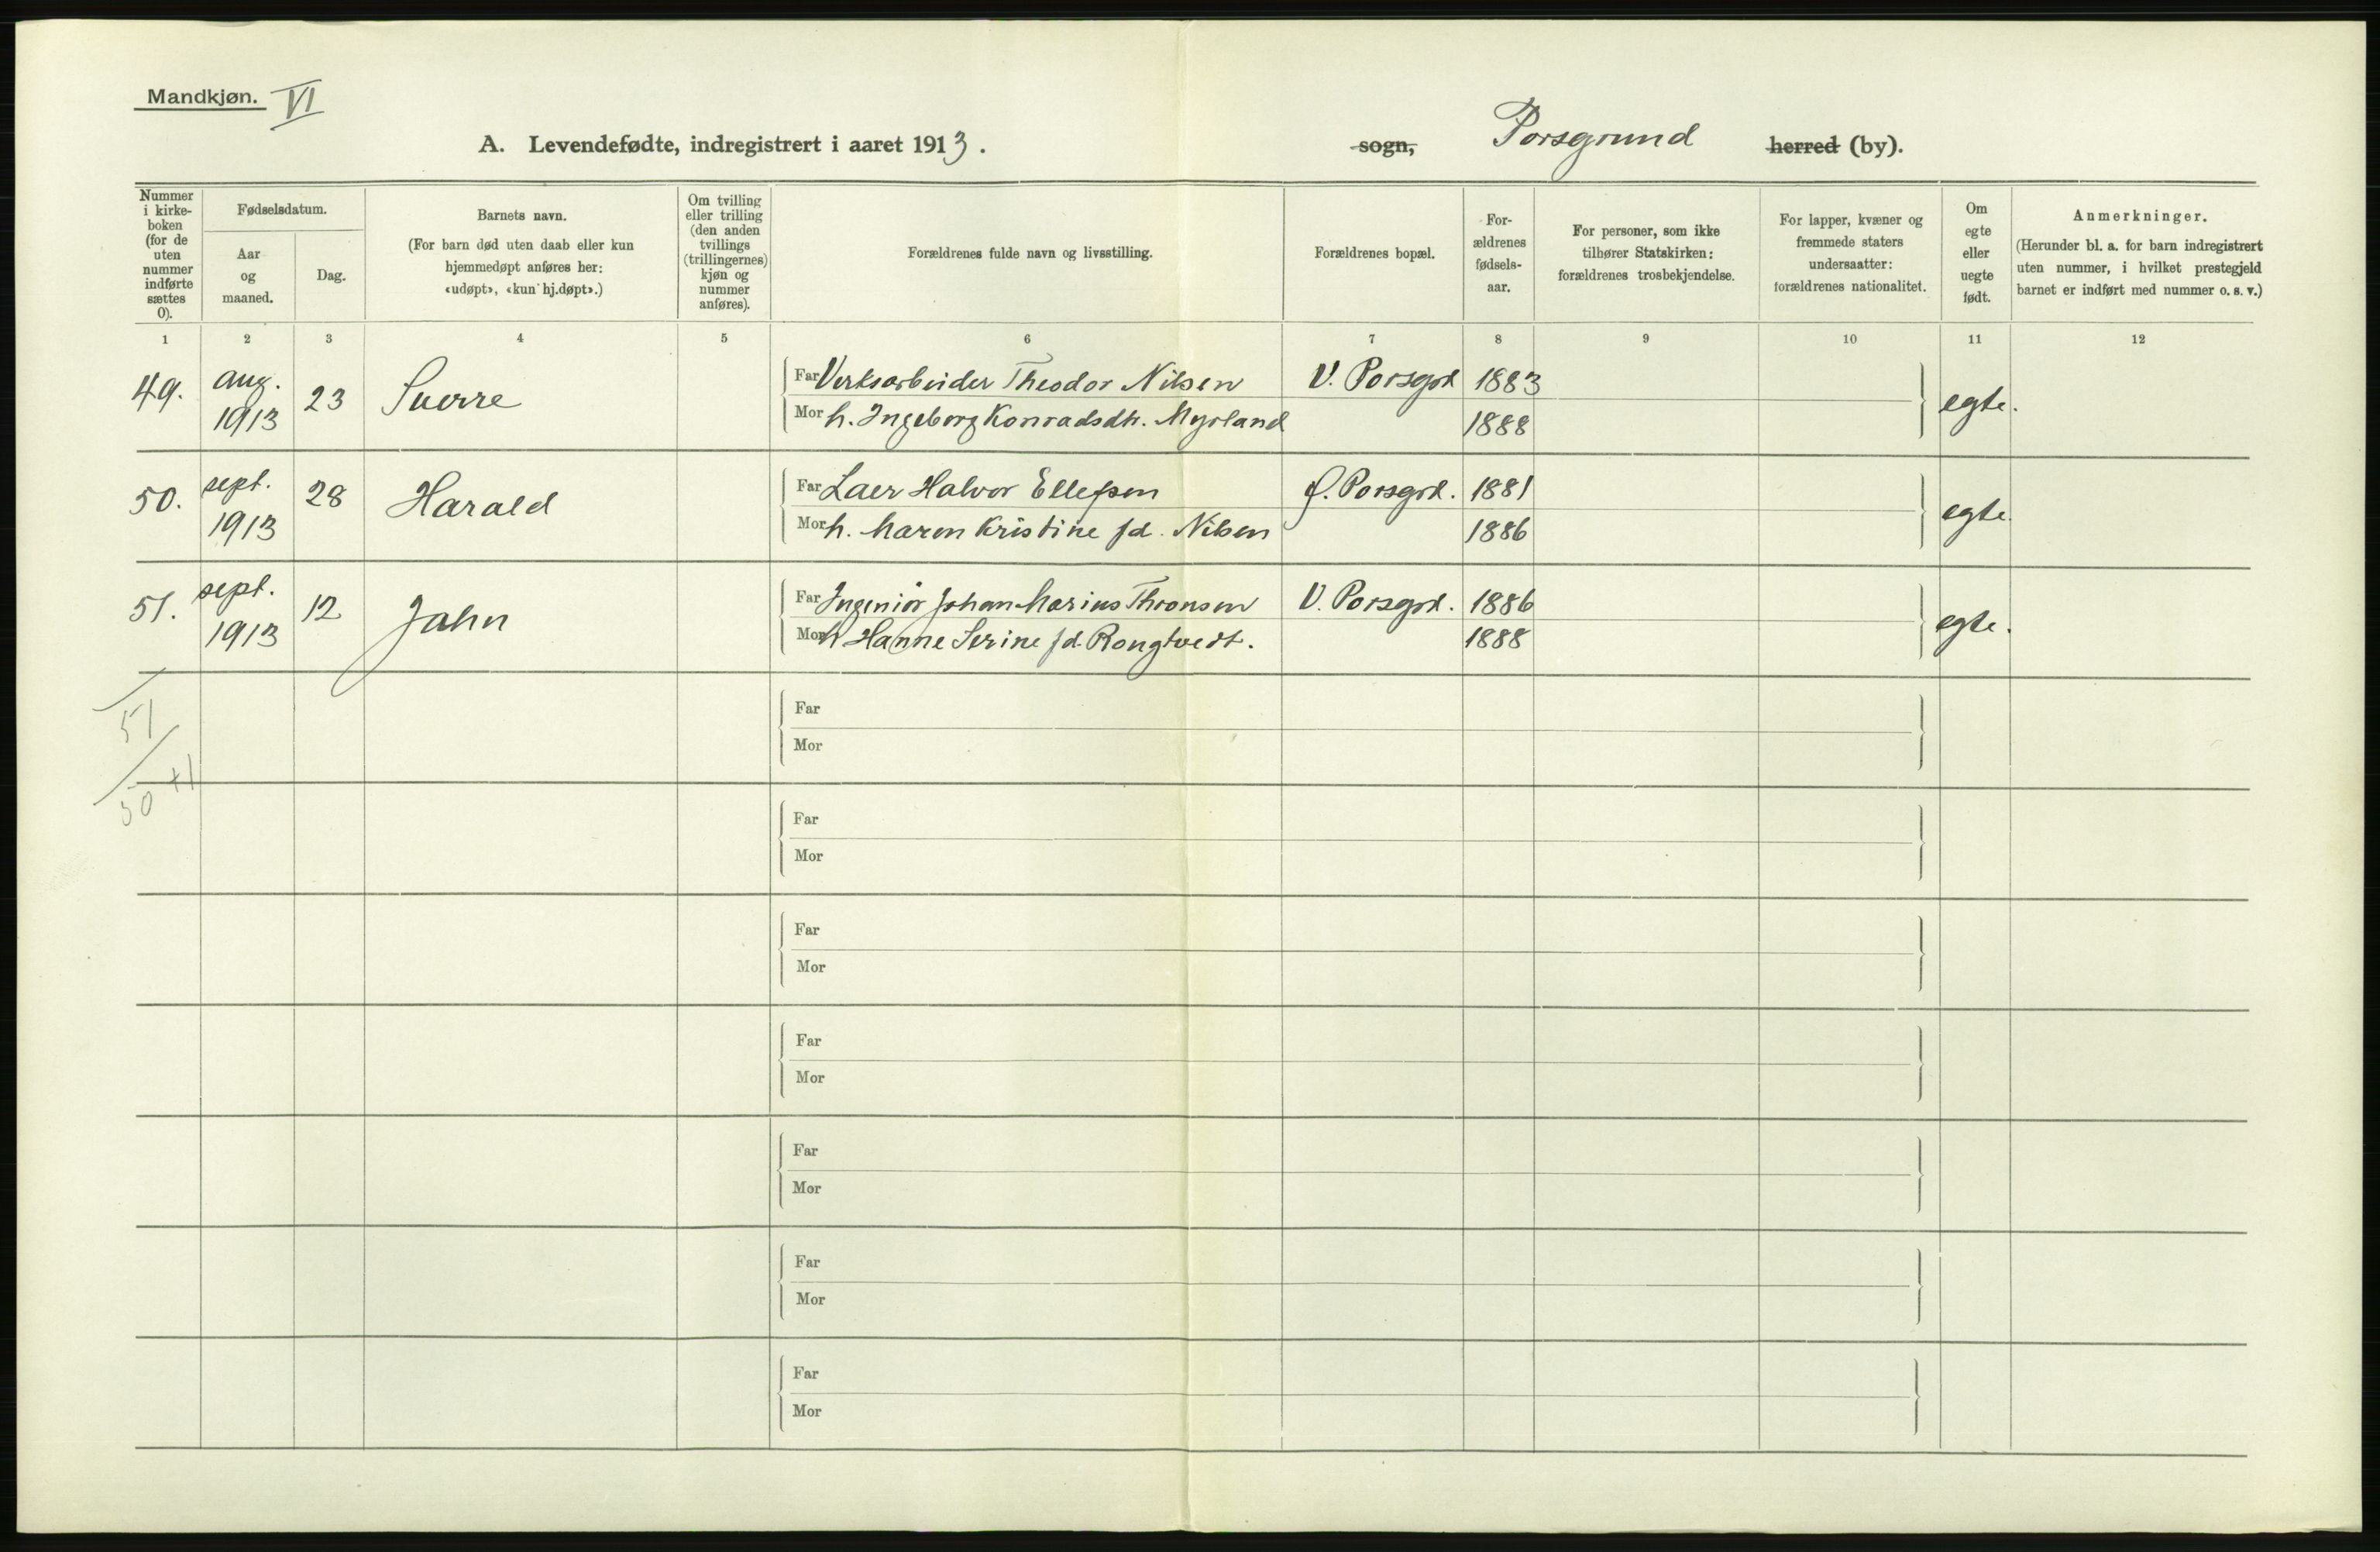 Mandkjøn. VI
A. Levendefødte, indregistrert i aaret 1913. sogn, Porsgrund herred (by).
Nummer i kirkeboken (for de uten nummer indførte sættes 0).
Fødselsdatum.
Aar og maaned.
Dag.
Barnets navn.
(For barn død uten daab eller kun
hjemmedøpt anføres her:
«udøpt», «kun hj.døpt».)
Om tvilling
eller trilling
(den anden
tvillings
(trillingernes)
kjøn og
nummer
anføres).
Forældrenes fulde navn og livsstilling.
Forældrenes bopæl.
For-
ældrenes
fødsels-
aar.
For personer, som ikke
tilhører Statskirken:
forældrenes trosbekjendelse.
For lapper, kvæner og
fremmede staters
undersaatter:
forældrenes nationalitet.
Om
egte
eller
uegte
født.
Anmerkninger.
(Herunder bl. a. for barn indregistrert
uten nummer, i hvilket prestegjeld
barnet er indført med nummer o. s. v.)
1 2 3 4 5 6 7 8 9 10 11 12
49. aug. 1913 23 Sverre Far Verksarbeider Theodor Nilsen V. Porsgrd 1883 egte.
Mor h. Ingeborg Konradsdtr. Myrland 1888
50. sept. 1913 28 Harald Far Laer Halvor Ellefsen Ø. Porsgrd. 1881 egte.
Mor h. Maren Kristine fd. Nilsen 1886
51. sept. 1913 12 Jahn Far Ingeniør Johan Marius Thronsen V. Porsgrd. 1886 egte.
Mor h Hanne Serine fd. Rongtvedt. 1888
51
50 +1
Far
Mor
Far
Mor
Far
Mor
Far
Mor
Far
Mor
Far
Mor
Far
Mor